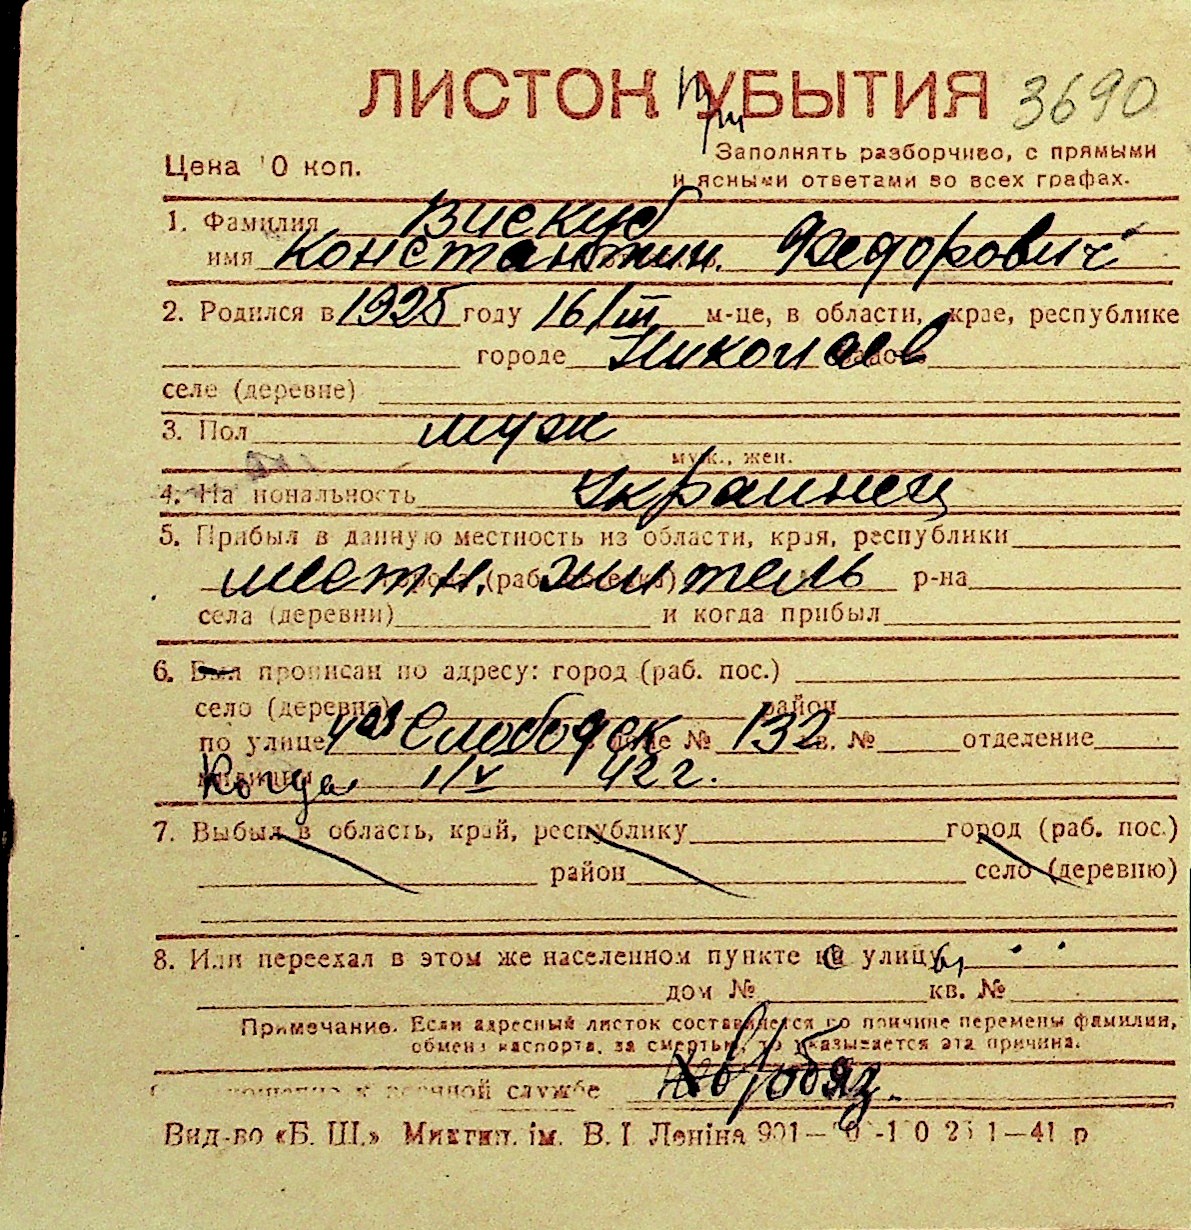 ЛИСТОК УБЫТИЯ 3690
При
Цена 10 коп.
Заполнять разборчиво, с прямыми
и ясными ответами во всех графах.
1. Фамилия Вискуб
имя Константин. Федорович
2. Родился в 1925 году 16/III м-це, в области, крае, республике
городе Николаев
селе (деревне)
3. Пол муж
муж., жен.
4. Национальность Украинец
5. Прибыл в данную местность из области, края, республики
местн. житель р-на
села (деревни) и когда прибыл
6. Был прописан по адресу: город (раб. пос.)
село (деревня) район
по улице 4 ая Слободск доме № 132 кв. № отделение
милиции Когда 1/V 42 г.
7. Выбыл в область, край, республику город (раб. пос.)
район село (деревню)
8. Или переехал в этом же населенном пункте с улицы
дом № кв. №
Примечание. Если адресный листок составляется по причине перемены фамилии,
обмена паспорта, за смертью, то указывается эта причина.
Отношение к военной службе невобяз.
Вид-во «Б. Ш.» Миктип. ім. В. І. Леніна